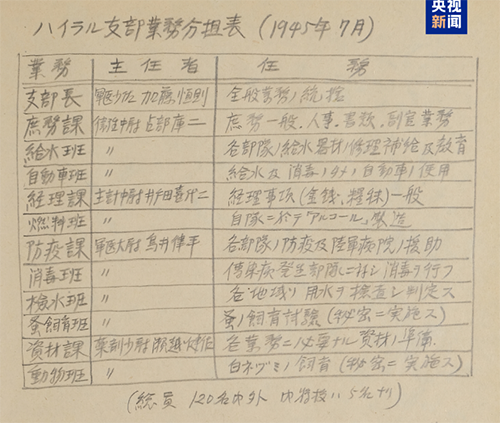 央视
新闻
ハイラル支部業務分担表 (1945年7月)
業務 主任者 任務
支部長 軍医少佐 加藤恒則 全般業務ノ統轄
庶務課 衛生中尉 占部庫二 庶務一般、人事、書類、副官業務
給水班 〃 各部隊ノ給水器材ノ修理補給及教育
自動車班 〃 給水及消毒ノタメノ自動車ノ使用
経理課 主計中尉 井田喜代二 経理事項(金銭、糧秣)一般
燃料班 〃 自隊ニ於テアルコール製造
防疫課 軍医大尉 鳥井偉平 各部隊ノ防疫及陸軍病院ノ援助
消毒班 〃 傳染病発生部隊ニ対シ消毒ヲ行フ
檢水班 〃 各地域ノ用水ヲ檢査シ判定ス
蚤飼育班 〃 蚤ノ飼育試験 (秘密ニ実施ス)
資材課 薬剤少尉 各業務ニ必要ナル資材ノ準備
動物班 〃 白ネヅミノ飼育 (秘密ニ実施ス)
(総員 120名内外 内将校ハ5名ナリ)